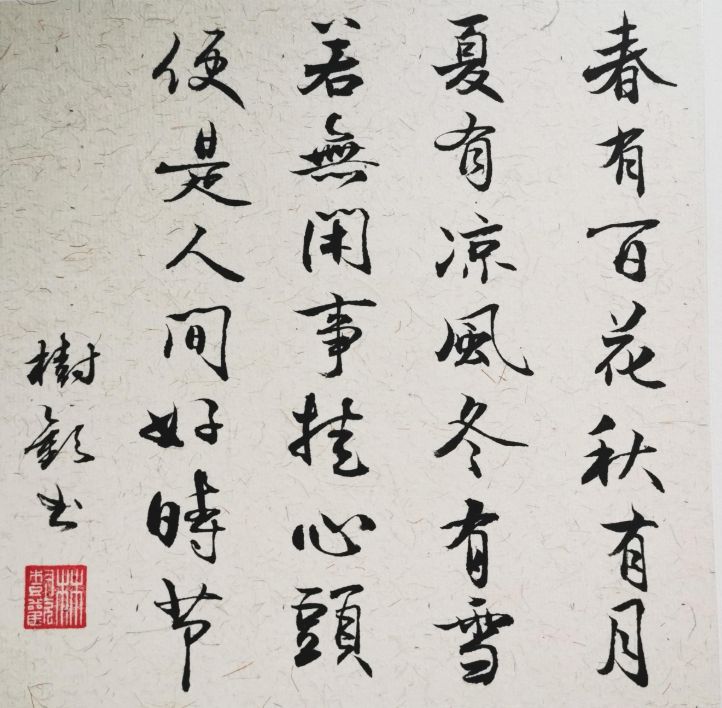 春有百花秋有月
夏有凉風冬有雪
若無閑事挂心頭
便是人间好時节
樹勤书